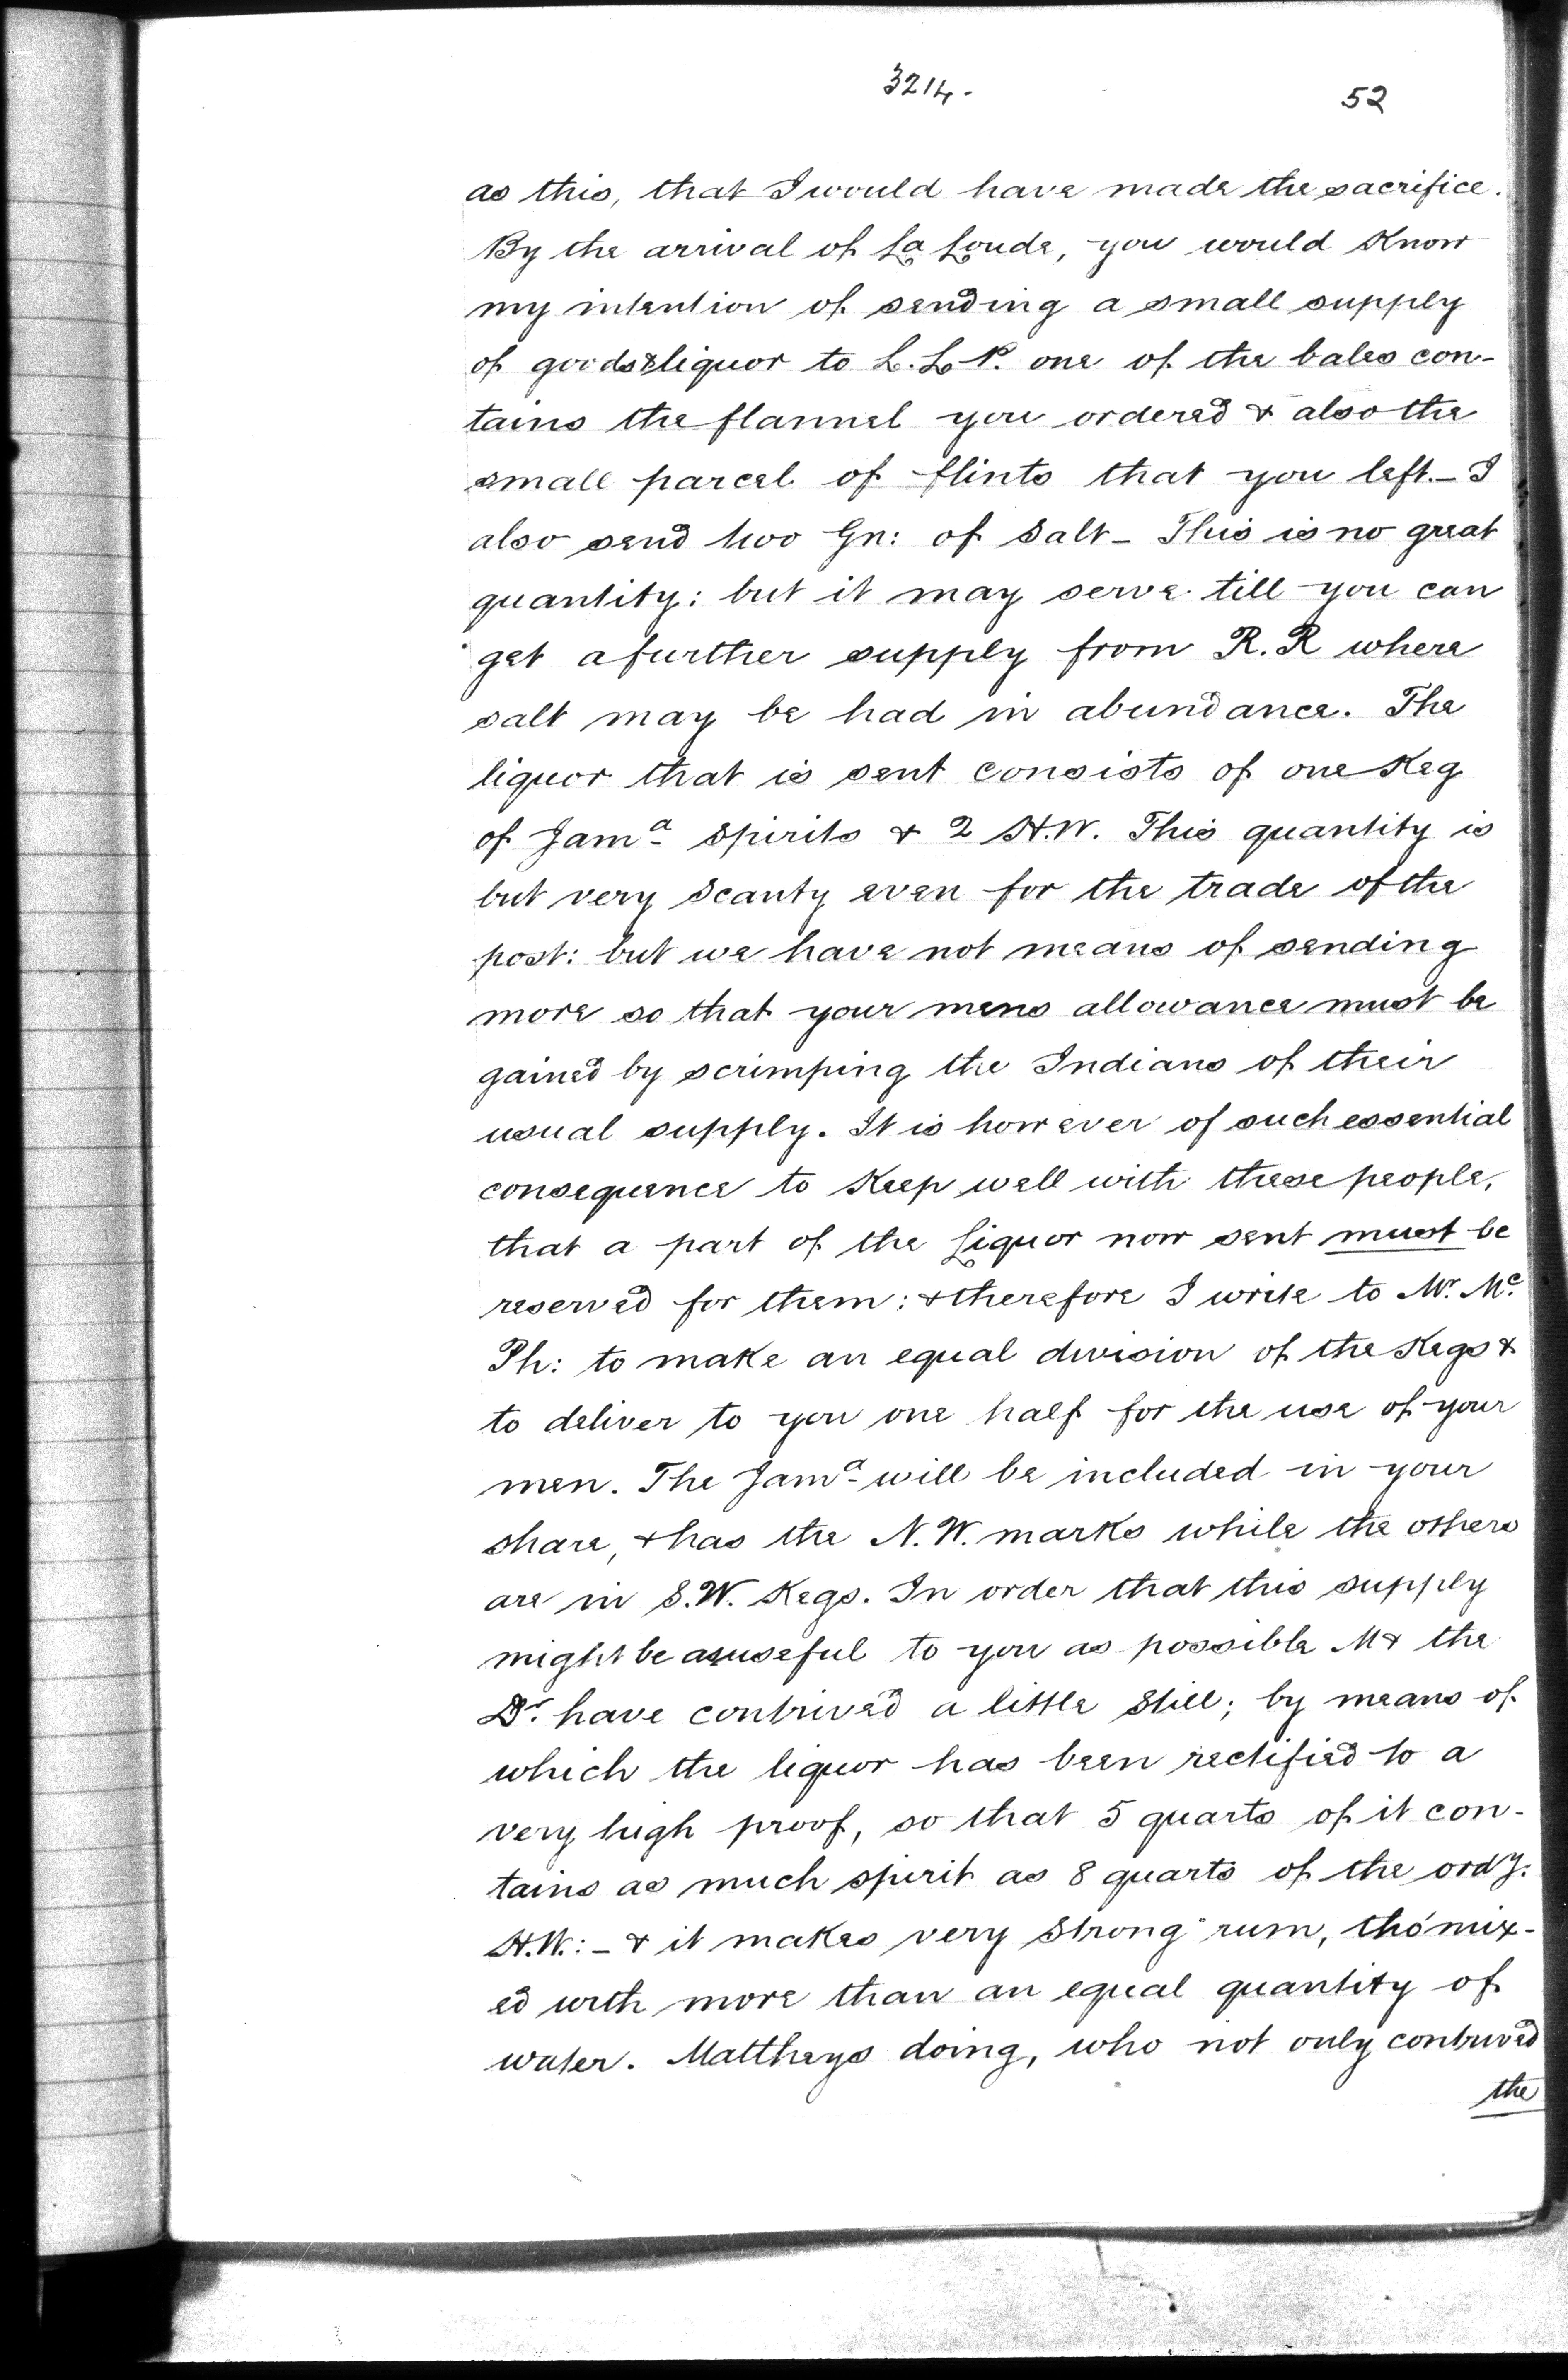 3214.
52
as this, that I would have made the sacrifice.
By the arrival of La Londe, you would Know
my intention of sending a small supply
of goods & liquor to L. L. P. one of the bales con-
tains the flannel you ordered & also the
small parcel of flints that you left. – I
also send two Gn: of Salt – This is no great
quantity: but it may serve till you can
get a further supply from R. R where
salt may be had in abundance. The
liquor that is sent consists of one Keg
of Jamª Spirits & 2 H.W. This quantity is
but very Scanty even for the trade of the
post: but we have not means of sending
more so that your mens allowance must be
gained by scrimping the Indians of their
usual supply. It is however of such essential
consequence to Keep well with these people,
that a part of the Liquor now sent must be
reserved for them: & therefore I write to Mr. Mc.
Ph: to make an equal division of the Kegs &
to deliver to you one half for the use of your
men. The Jamª will be included in your
share, & has the N.W. marks while the others
are in S.W. Kegs. In order that this supply
might be as useful to you as possible M & the
Dr. have contrived a little Still; by means of
which the liquor has been rectified to a
very high proof, so that 5 quarts of it con-
tains as much spirit as 8 quarts of the ordy.
H.W.: – & it makes very Strong rum, tho' mix-
ed with more than an equal quantity of
water. Mattheys doing, who not only contrived
the